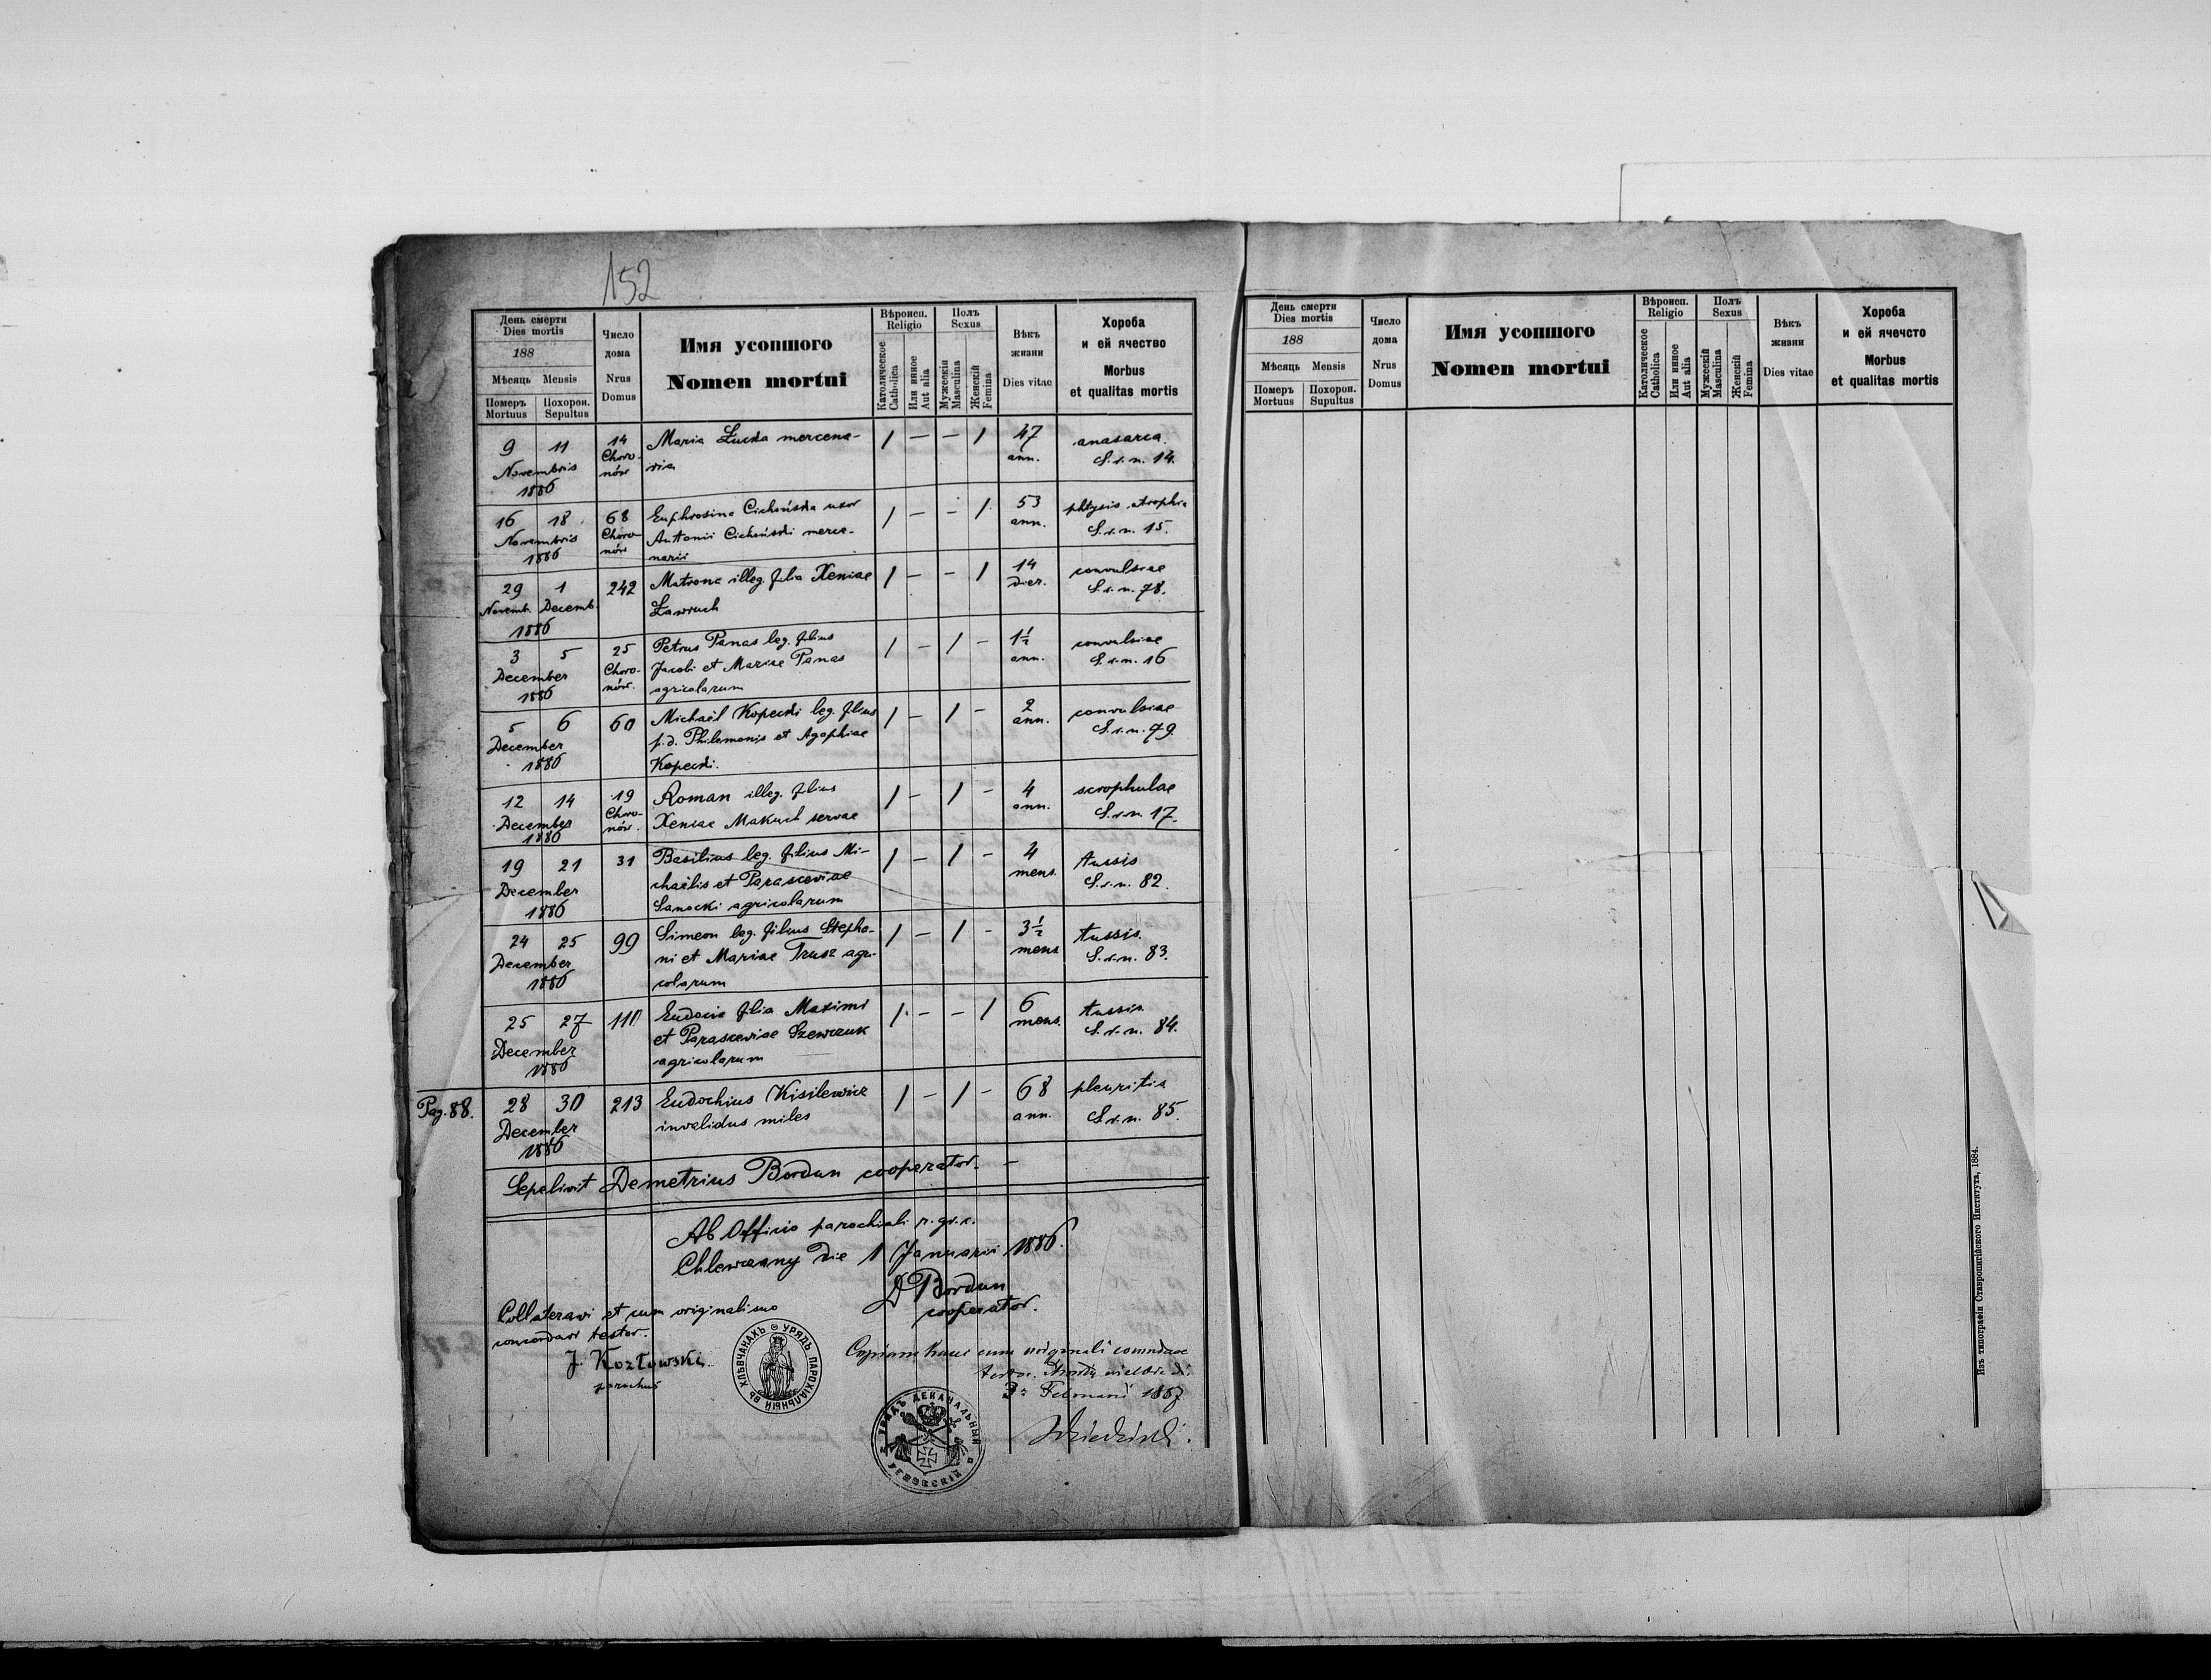 152
День смерти
Dies mortis
188
Мѣсяць Mensis
Померъ Похорон.
Mortuus Sepultus
Число
дома
Nrus
Domus
Имя усопшого
Nomen mortui
Вѣроисп.
Religio
Католическое
Catholica
Или инное
Aut alia
Полъ
Sexus
Мужескій
Masculina
Женскій
Femina
Вѣкъ
жизни
Dies vitae
Хороба
и ей ячество
Morbus
et qualitas mortis
9 11 14 Maria Łucka mercena- / — — / 47 anasarca.
Novembris Choro- ria ann. S. s. n. 14.
1886 nów
16 18 68 Euphrosina Cicheńska uxor / — — / 53 phtysis atrophia
Novembris Choro- Antonii Cicheński merce- ann. S. s. n. 15.
1886 nów narii
29 1 242 Matrona illeg. filia Xeniae / — — / 14 convulsiae
Novemb. Decemb. Ławruch dier. S. s. n. 78.
1886
3 5 25 Petrus Panas leg. filius / — / — 1½ convulsiae
December Choro- Jacobi et Mariae Panas ann. S. s. n. 16
1886 nów. agricolarum
5 6 60 Michaël Kopecki leg. filius / — / — 2 convulsiae
December p. d. Philemonis et Agaphiae ann. S. s. n. 79.
1886 Kopecki.
12 14 19 Roman illeg. filius / — / — 4 scrophulae
December Choro- Xeniae Makuch servae ann. S. s. n. 17.
1886 nów.
19 21 31 Basilius leg. filius Mi- / — / — 4 tussis
December chaëlis et Parasceviae mens. S. s. n. 82.
1886 Sanocki agricolarum
24 25 99 Simeon leg. filius Stepha- / — / — 3½ tussis.
December ni et Mariae Trusz agri- mens S. s. n. 83.
1886 colarum
25 27 110 Eudocia filia Maximi / — — / 6 tussis.
December et Parasceviae Szewczuk mens. S. s. n. 84.
1886 agricolarum
Pag. 88. 28 30 213 Eudochius Kisilewicz / — / — 68 pleuritis
December invalidus miles ann. S. s. n. 85.
1886
Sepelivit Demetrius Bordun cooperator. —
Ab Officio parochiali r. gr. c.
Chlewczany die 1 Januarii 1886.
D Bordun
cooperator.
Collateravi et cum originali suo
concordare testor.
J. Kozłowski
parochus
УРЯДЪ ПАРОХІАЛЬНЫЙ ВЪ ХЛѢВЧАНАХЪ
Copiam hanc cum originali concordare
testor.
3 Februarii 1887
УРЯДЪ ДЕКАНАЛЬНЫЙ
УГНОВСКІЙ
День смерти
Dies mortis
188
Мѣсяць Mensis
Померъ Похорон.
Mortuus Supultus
Число
дома
Nrus
Domus
Имя усопшого
Nomen mortui
Вѣроисп.
Religio
Католическое
Catholica
Или инное
Aut alia
Полъ
Sexus
Мужескій
Masculina
Женскій
Femina
Вѣкъ
жизни
Dies vitae
Хороба
и ей ячечсто
Morbus
et qualitas mortis
Изъ типографіи Ставропигійского Института, 1884.